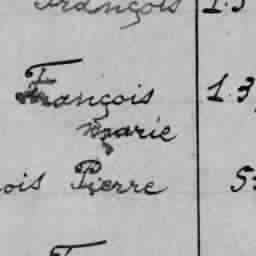 François 1.3
François 1.3
Marie
ois Pierre 5